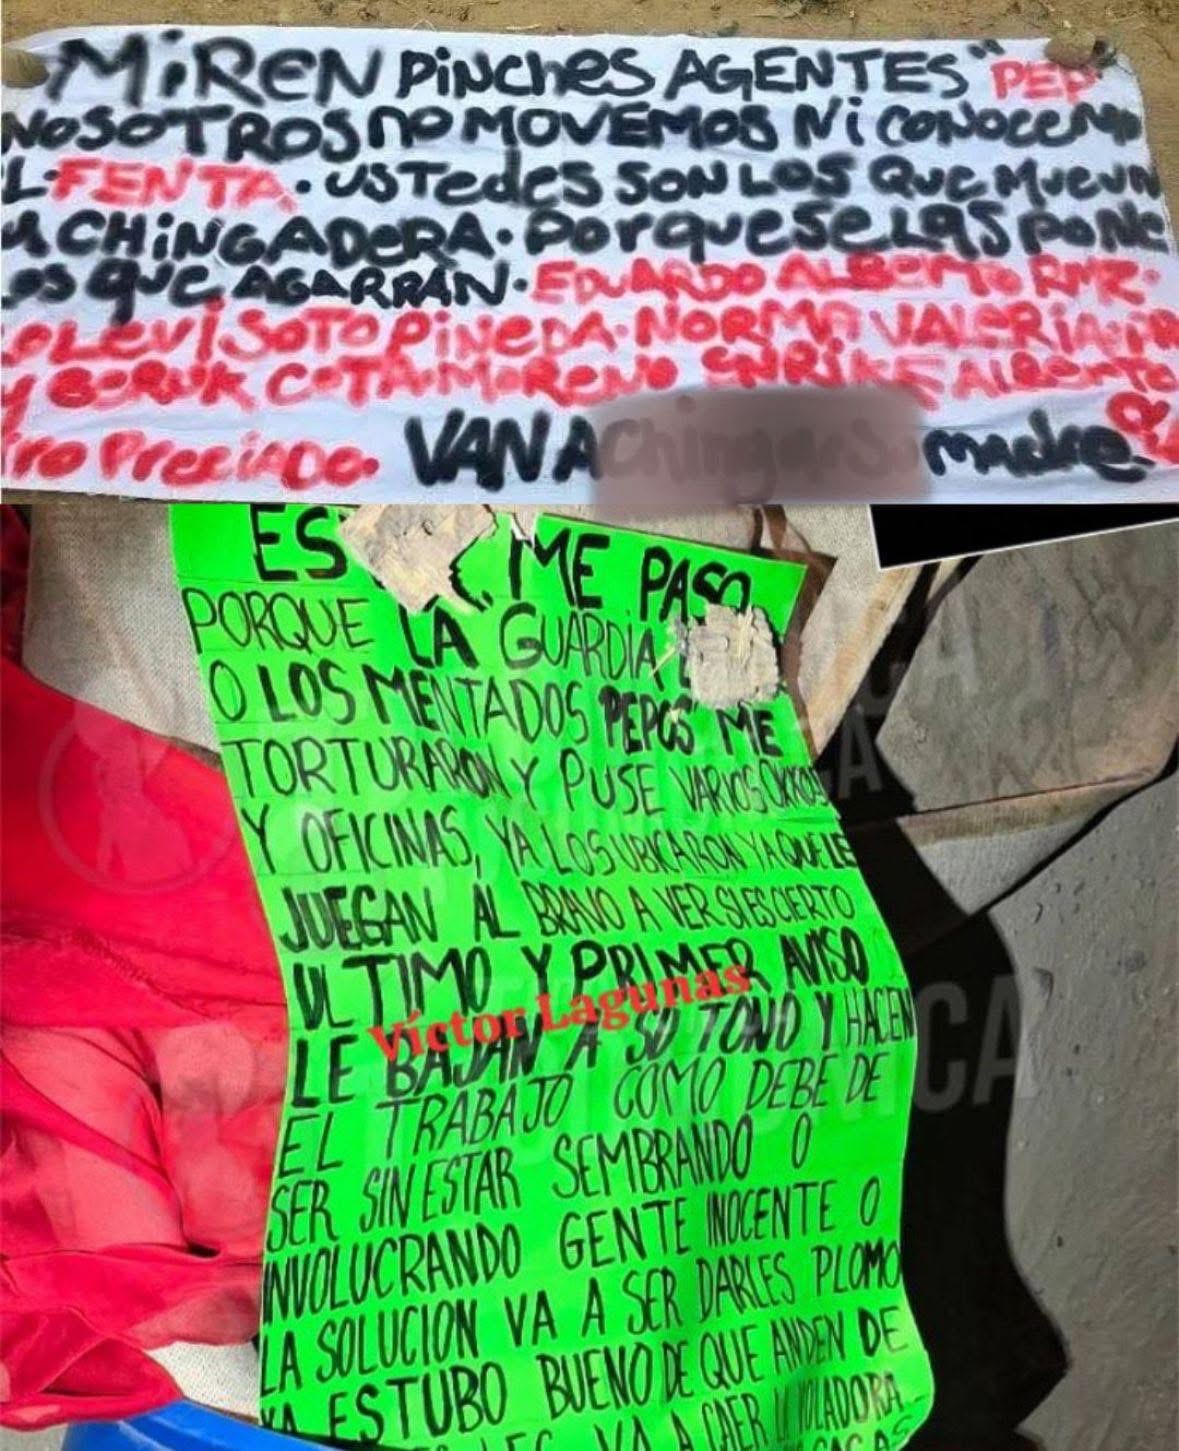 MiREN PiNChES AGENTES "PEP"
NOSOTROS no MOVEMOS Ni CONOCEM
L FENTA. USTedes SON LOS QUE MUEVN
A CHiNGADERA. Porque se LAS PONE
OS QUE AGARRAN. EDUARDO ALBERTO RMZ.
LEVI SOTO PINEDA. NORMA VALERIA
Y COTA MORENO ALBERTO
PRECIADO. VAN A Chingar Su madre.
ES ME PASO
PORQUE LA GUARDIA
O LOS MENTADOS "PEPOS" ME
TORTURARON Y PUSE VARIOS
Y OFICINAS, YA LOS UBICARON YA QUE LE
JUEGAN AL BRAVO A VER SI ES CIERTO
ULTIMO Y PRIMER AVISO
Víctor Lagunas
LE BAJAN A SO TONO Y HACEN
EL TRABAJO COMO DEBE DE
SER SIN ESTAR SEMBRANDO O
INVOLUCRANDO GENTE INOCENTE O
LA SOLUCION VA A SER DARLES PLOMO
YA ESTUBO BUENO DE QUE ANDEN DE
VA A CAER VOLADORA